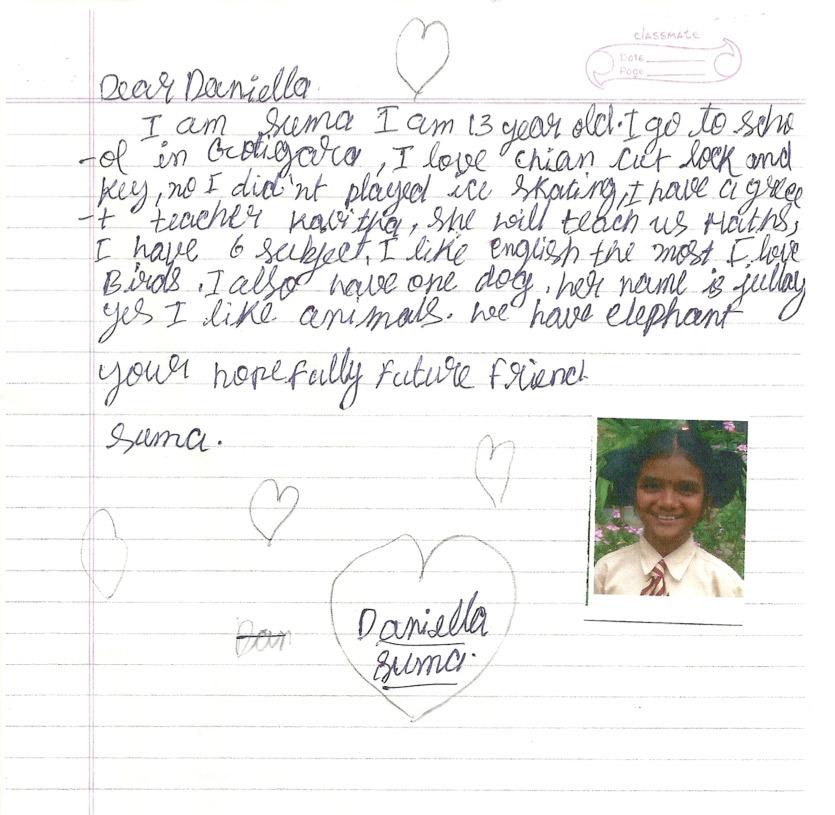 classmate
Date
Page
Dear Daniella
I am suma I am 13 year old. I go to scho
-ol in Gotigara, I love chian cut lock and
key, no I did'nt played ice skating, I have a gree
-t teacher kavitha, she will teach us Maths,
I have 6 subject, I like english the most I love
Birds. I also have one dog. her name is jullay
yes I like animals. we have elephant
your hopefully future friend
suma.
Dan
Daniella
suma.